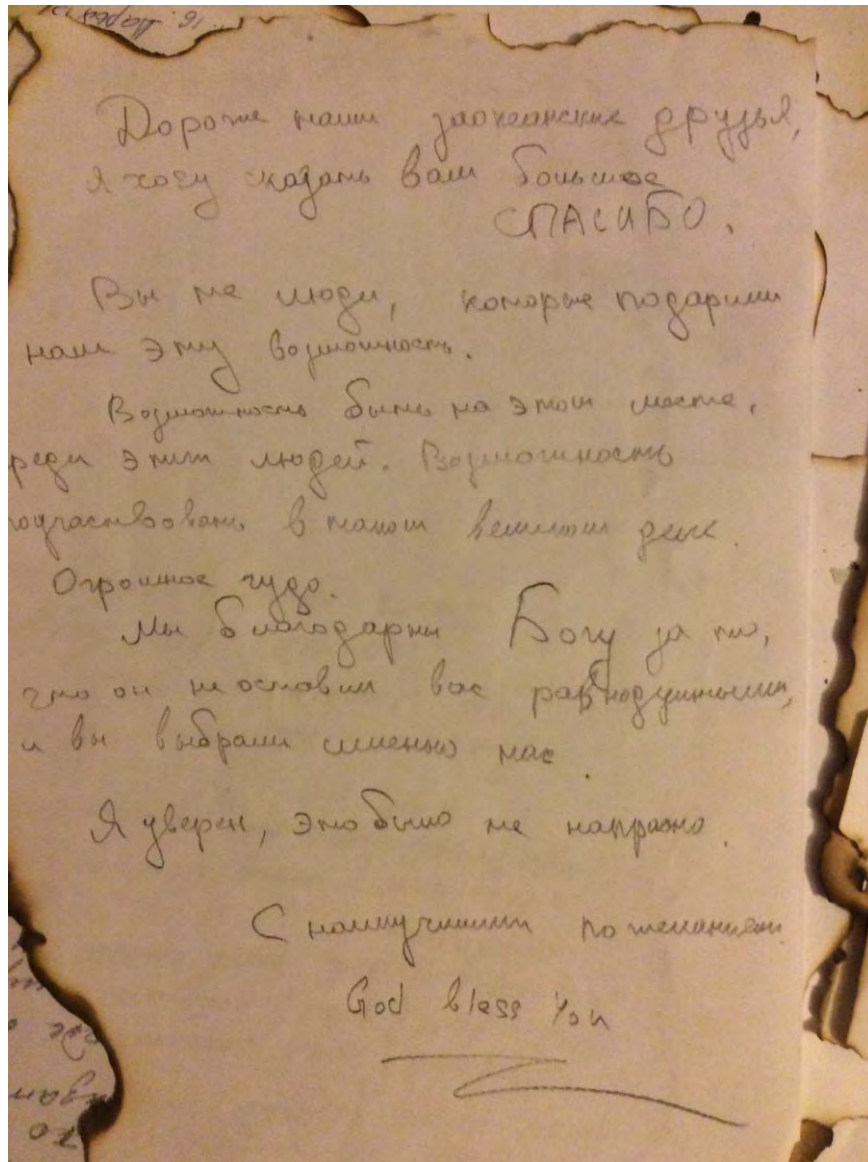 16. Дарья
Дороже наши заокеанские друзья,
я хочу сказать вам большое
СПАСИБО.
Вы те люди, которые подарили
нам эту возможность.
Возможность быть на этом месте,
реди этих людей. Возможность
поучаствовать в таком великом деле.
Огромное чудо.
Мы благодарны Богу за то,
что он не оставил вас равнодушными,
и вы выбрали именно нас.
Я уверен, это было не напрасно.
С наилучшими пожеланиями
God bless You